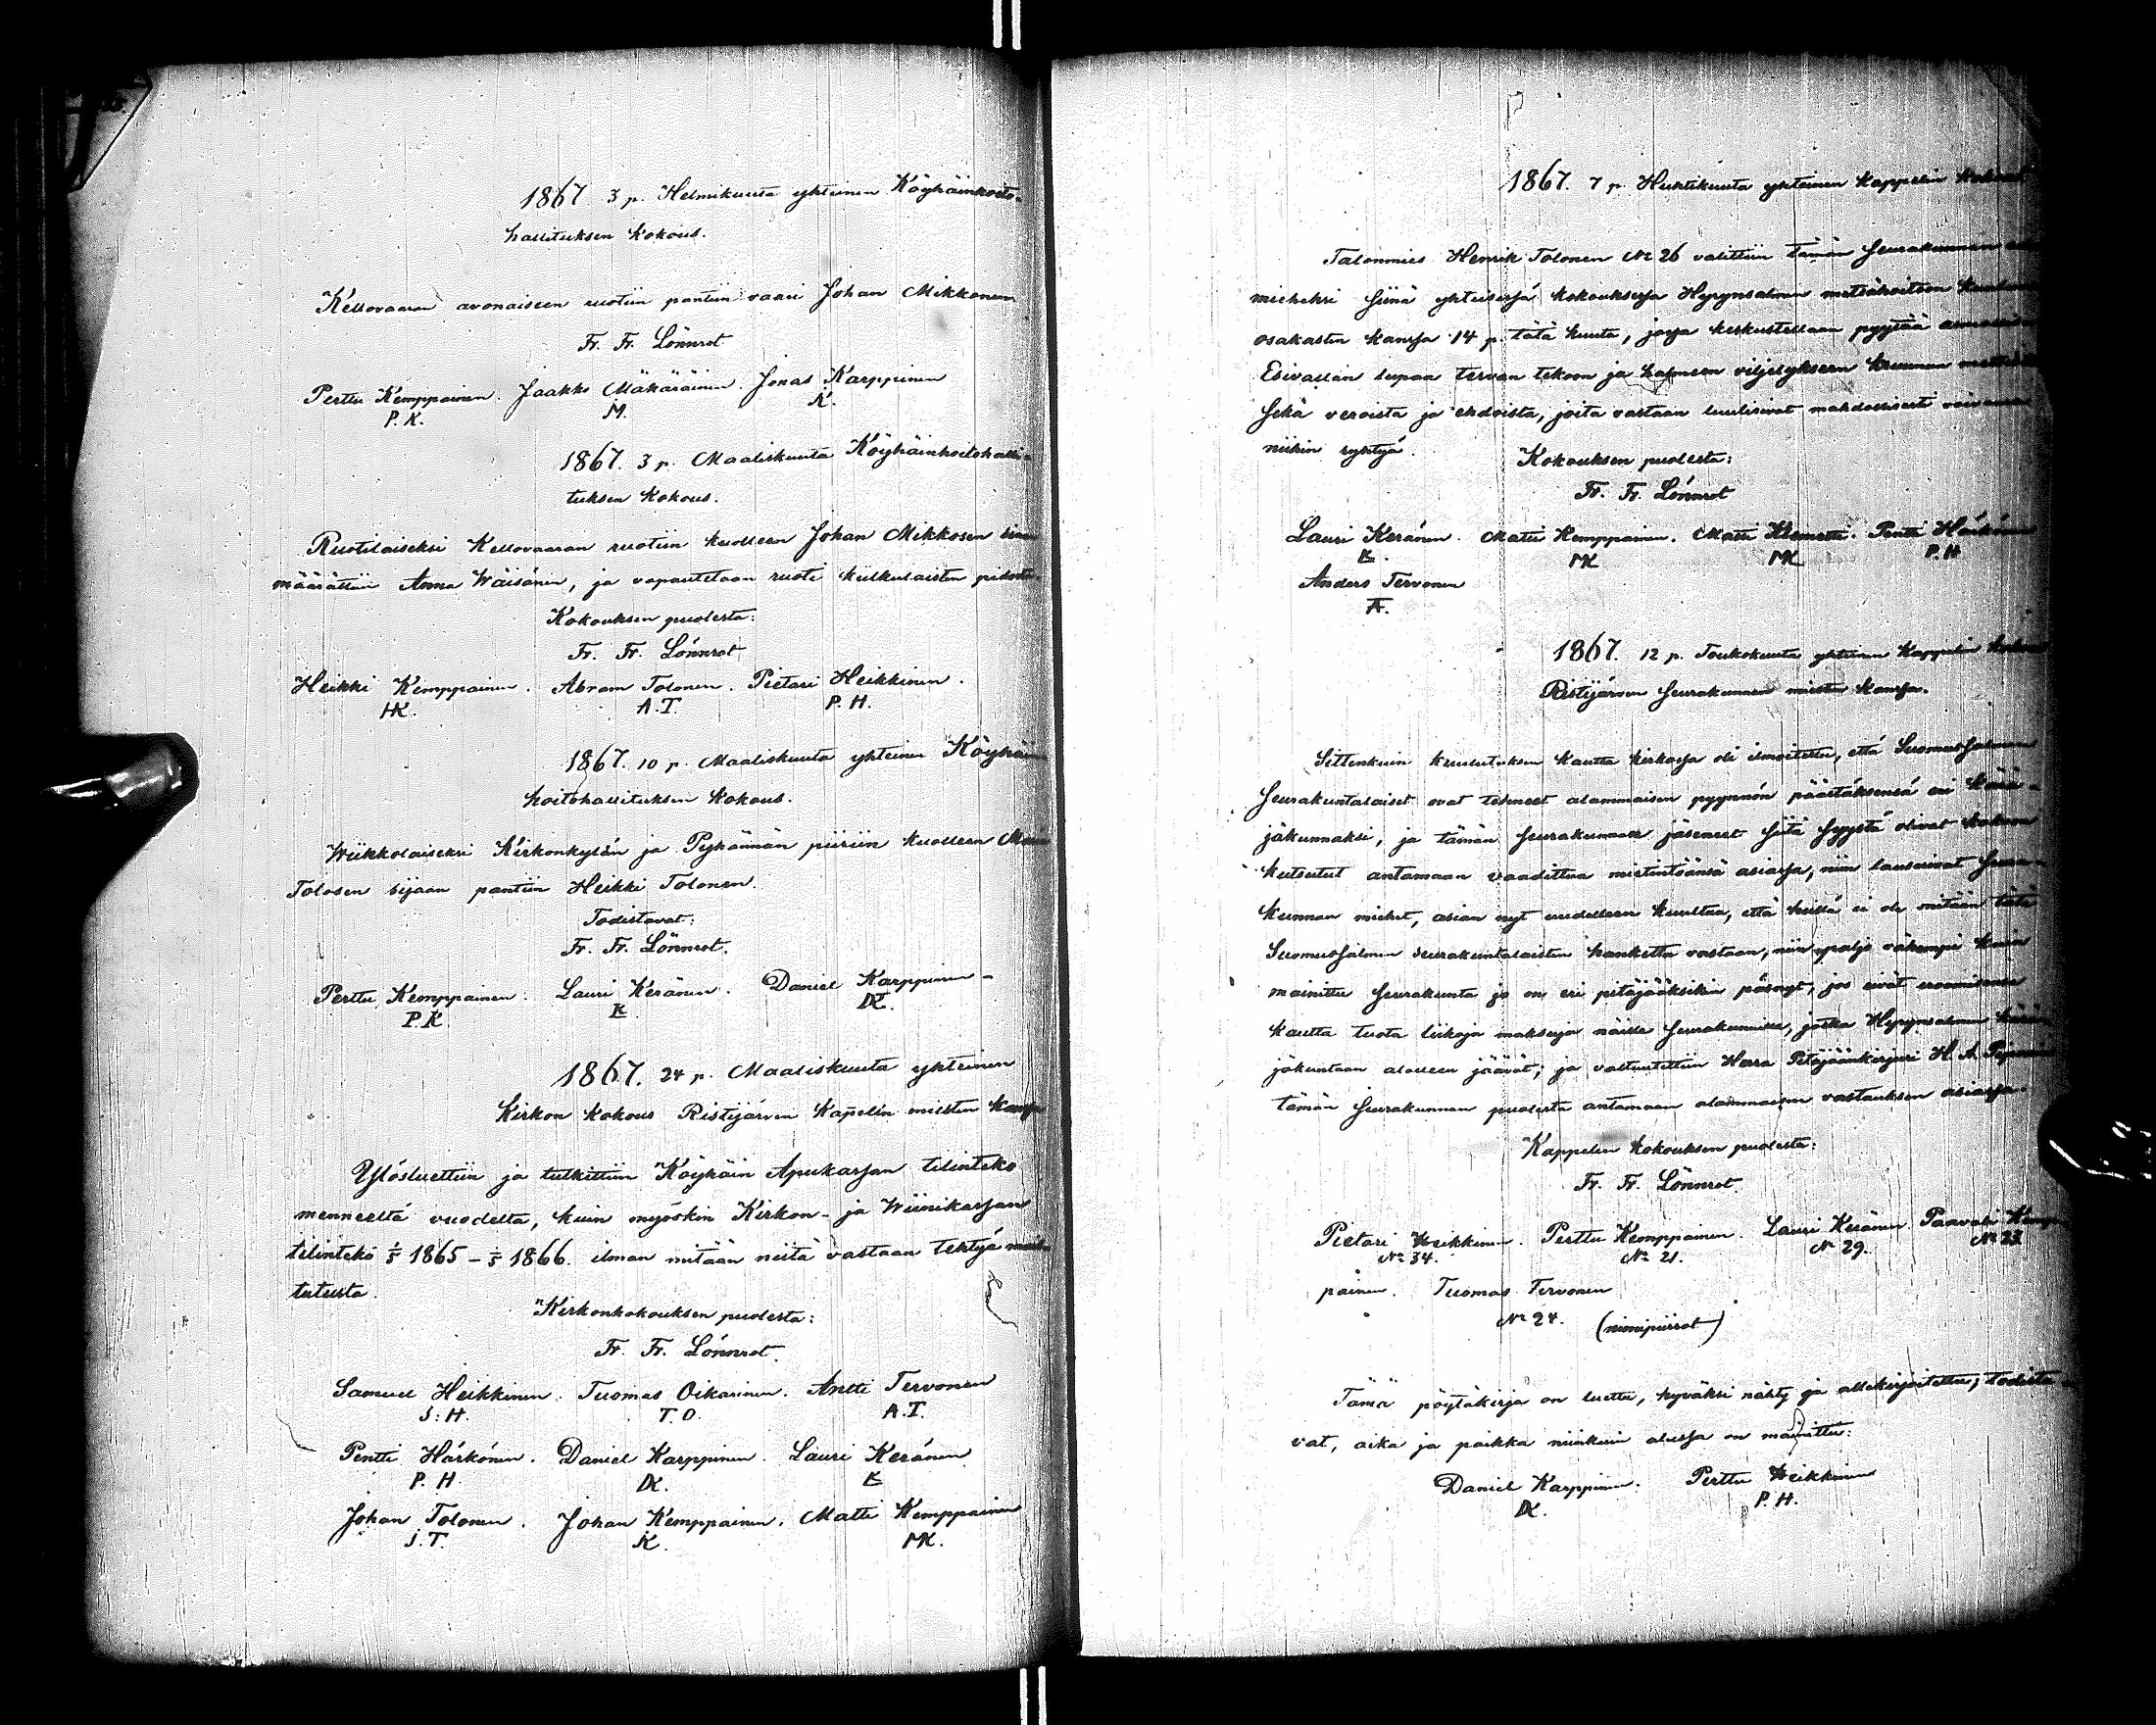 1867. 3 p. Helmikuuta yhteinen Köyhäinhoito-
hallituksen kokous.
Kellovaaran avonaiseen ruotiin pantiin vaari Johan Mikkonen
Fr. Fr. Lönnrot
Perttu Kemppainen. Jaakko Mäkäräinen. Jonas Karppinen
P. K. M. K.
1867. 3 p. Maaliskuuta Köyhäinhoitohalli-
tuksen kokous.
Ruotilaiseksi Kellovaaran ruotiin kuolleen Johan Mikkosen
määrättiin Anna Wäisänen, ja vapautetaan ruoti kulkulaisten pidosta.
Kokouksen puolesta:
Fr. Fr. Lönnrot
Heikki Kemppainen. Abram Tolonen. Pietari Heikkinen.
HK. A.T. P. H.
1867. 10 p. Maaliskuuta yhteinen Köyhäin
hoitohallituksen kokous.
Wiikkolaiseksi Kirkonkylän ja Pyhännän piiriin kuolleen
Tolosen sijaan pantiin Heikki Tolonen.
Todistavat:
Fr. Fr. Lönnrot.
Perttu Kemppainen. Lauri Keränen. Daniel Karppinen
P.K. K. DK.
1867. 24 p. Maaliskuuta yhteinen
Kirkon kokous Ristijärven Kapelin miesten kanssa
Ylösluettiin ja tutkittiin Köyhäin Apukassan tilinteko
menneeltä vuodelta, kuin myöskin Kirkon- ja Wiinikassan
tilinteko 1/5 1865 – 1/5 1866. ilman mitään niitä vastaan tehtyä muis-
tutusta.
Kirkonkokouksen puolesta:
Fr. Fr. Lönnrot.
Samuel Heikkinen. Tuomas Oikarinen. Antti Tervonen
S: H. T. O. A.T.
Pentti Härkönen. Daniel Karppinen. Lauri Keränen
P. H. DK. K
Johan Tolonen. Johan Kemppainen. Matti Kemppainen
J. T. K. MK.
1867. 7 p. Huhtikuuta yhteinen Kappelin kokous
Talonmies Henrik Tolonen No 26 valittiin tämän seurakunnan
mieheksi siinä yhteisessä kokouksessa Hyrynsalmen metsähoitoon kuuluvain
osakasten kanssa 14 p. tätä kuuta, jossa keskustellaan pyytää
Esivallan lupaa tervan tekoon ja halmeen viljelykseen kruunun
sekä veroista ja ehdoista, joita vastaan luulisivat mahdollisesti voivansa
niihin ryhtyä. Kokouksen puolesta:
Fr. Fr. Lönnrot
Lauri Keränen. Matti Kemppainen. Matti Klemetti. Pentti Härkönen
K. MK MK P. H
Anders Tervonen
A.
1867. 12 p. Toukokuuta yhteinen Kappelin kokous
Ristijärven seurakunnan miesten kanssa.
Sittenkuin kuulutuksen kautta kirkossa oli ilmoitettu, että Suomussalmen
seurakuntalaiset ovat tehneet alammaisen pyynnön päästäksensä eri kärä-
jäkunnaksi, ja tämän seurakunnan jäsenet siitä syystä olivat kokoon
kutsutut antamaan vaadittua mietintöänsä asiassa, niin lausuivat seura-
kunnan miehet, asian nyt uudelleen kuultua, että heillä ei ole mitään tätä
Suomussalmen seurakuntalaisten hanketta vastaan, niin paljo vähempi kuin
mainittu seurakunta jo on eri pitäjääksikin päässyt, jos eivät eroamisensa
kautta tuota liikoja maksuja näille seurakunnille, jotka Hyrynsalmen kärä-
jäkuntaan alalleen jäävät; ja valtuutettiin Herra Pitäjäänkirjuri H. A.
tämän seurakunnan puolesta antamaan alammaisen vastauksen asiassa.
Kappelin kokouksen puolesta:
Fr. Fr. Lönnrot.
Pietari Heikkinen. Perttu Kemppainen. Lauri Keränen. Paavali Kemp-
No 34. No 21. No 29. No 23.
painen. Tuomas Tervonen
No 24. (nimipiirrot)
Tämä pöytäkirja on luettu, hyväksi nähty ja allekirjoitettu; todista-
vat, aika ja paikka niinkuin alussa on mainittu:
Daniel Karppinen. Perttu Heikkinen
DK. P. H.